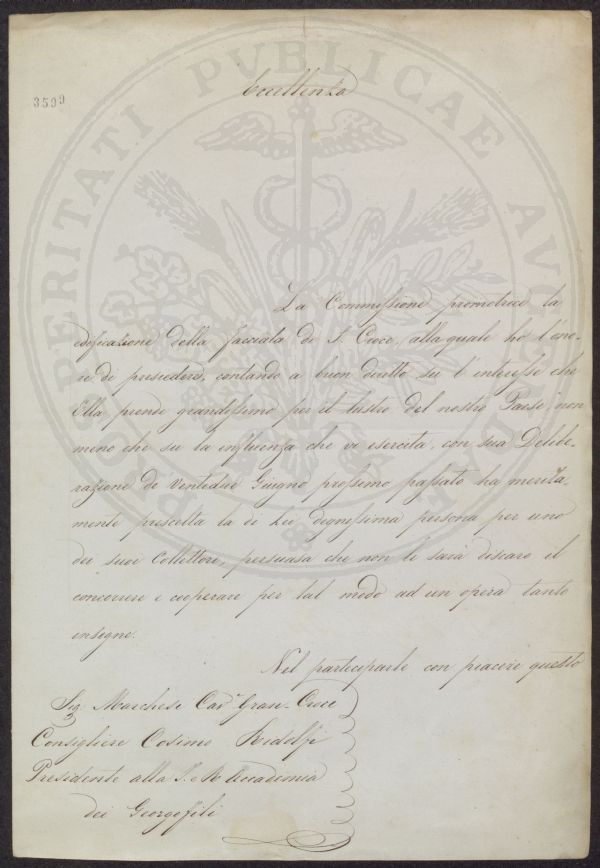 3599
Eccellenza
La Commissione promotrice la
edificazione della facciata di S. Croce, alla quale hò l'ono-
re di presiedere, contando a buon diritto su l'interesse che
Ella prende grandissimo per il lustro del nostro Paese non
meno che su la influenza che vi esercita, con sua Delibe-
razione de' Ventidue Giugno prossimo passato ha merita-
mente prescelta la di Lei degnissima persona per uno
dei suoi Collettori, persuasa che non le sarà discaro il
concorrere e cooperare per tal modo ad un opera tanto
insigne.
Nel parteciparle con piacere questo
Sig. Marchese Cav. Gran-Croce
Consigliere Cosimo Ridolfi
Presidente alla I. e R. Accademia
dei Georgofili
PROSPERITATI PVBLICAE AVGENDAE